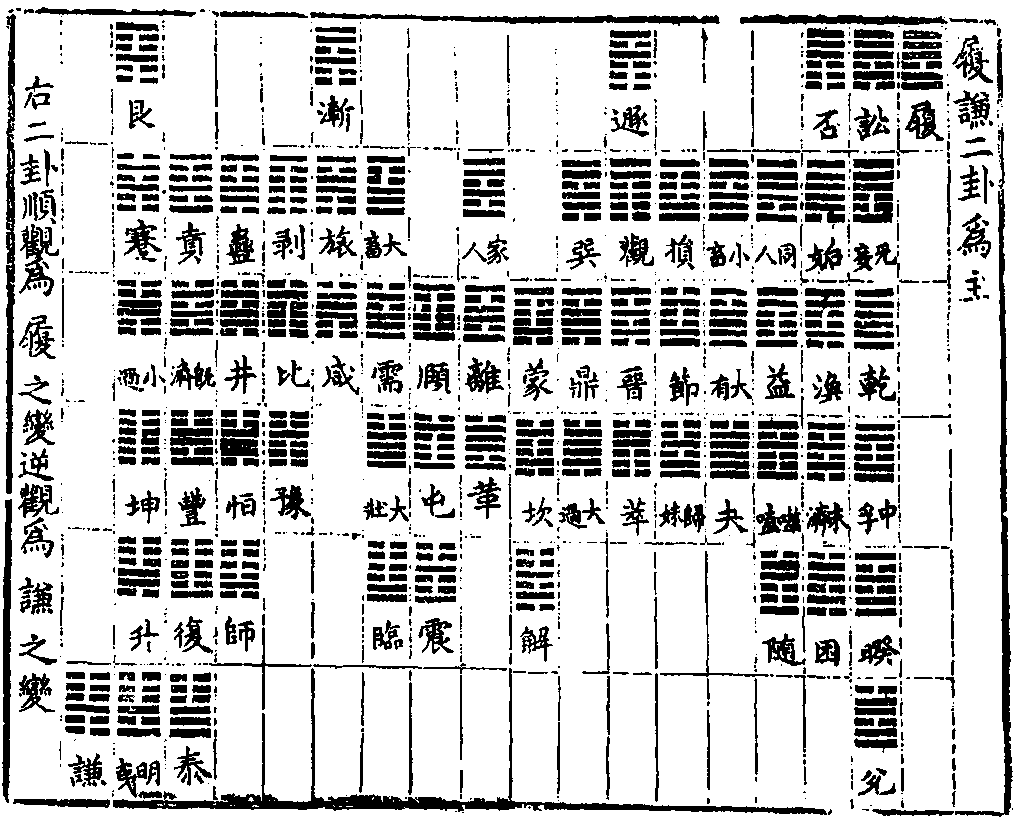 履謙二卦爲主
履
訟
无妄
乾
中孚
睽
兌
否
姤
渙
未濟
困
同人
益
噬嗑
随
小畜
大有
夬
損
節
歸妹
遯
觀
晉
萃
巽
鼎
大過
蒙
坎
解
家人
離
革
頤
屯
震
大畜
需
大壯
臨
漸
旅
咸
剥
比
豫
蠱
井
恒
師
賁
既濟
豐
復
泰
艮
蹇
小過
坤
升
明夷
謙
右二卦順觀爲履之變逆觀爲謙之變